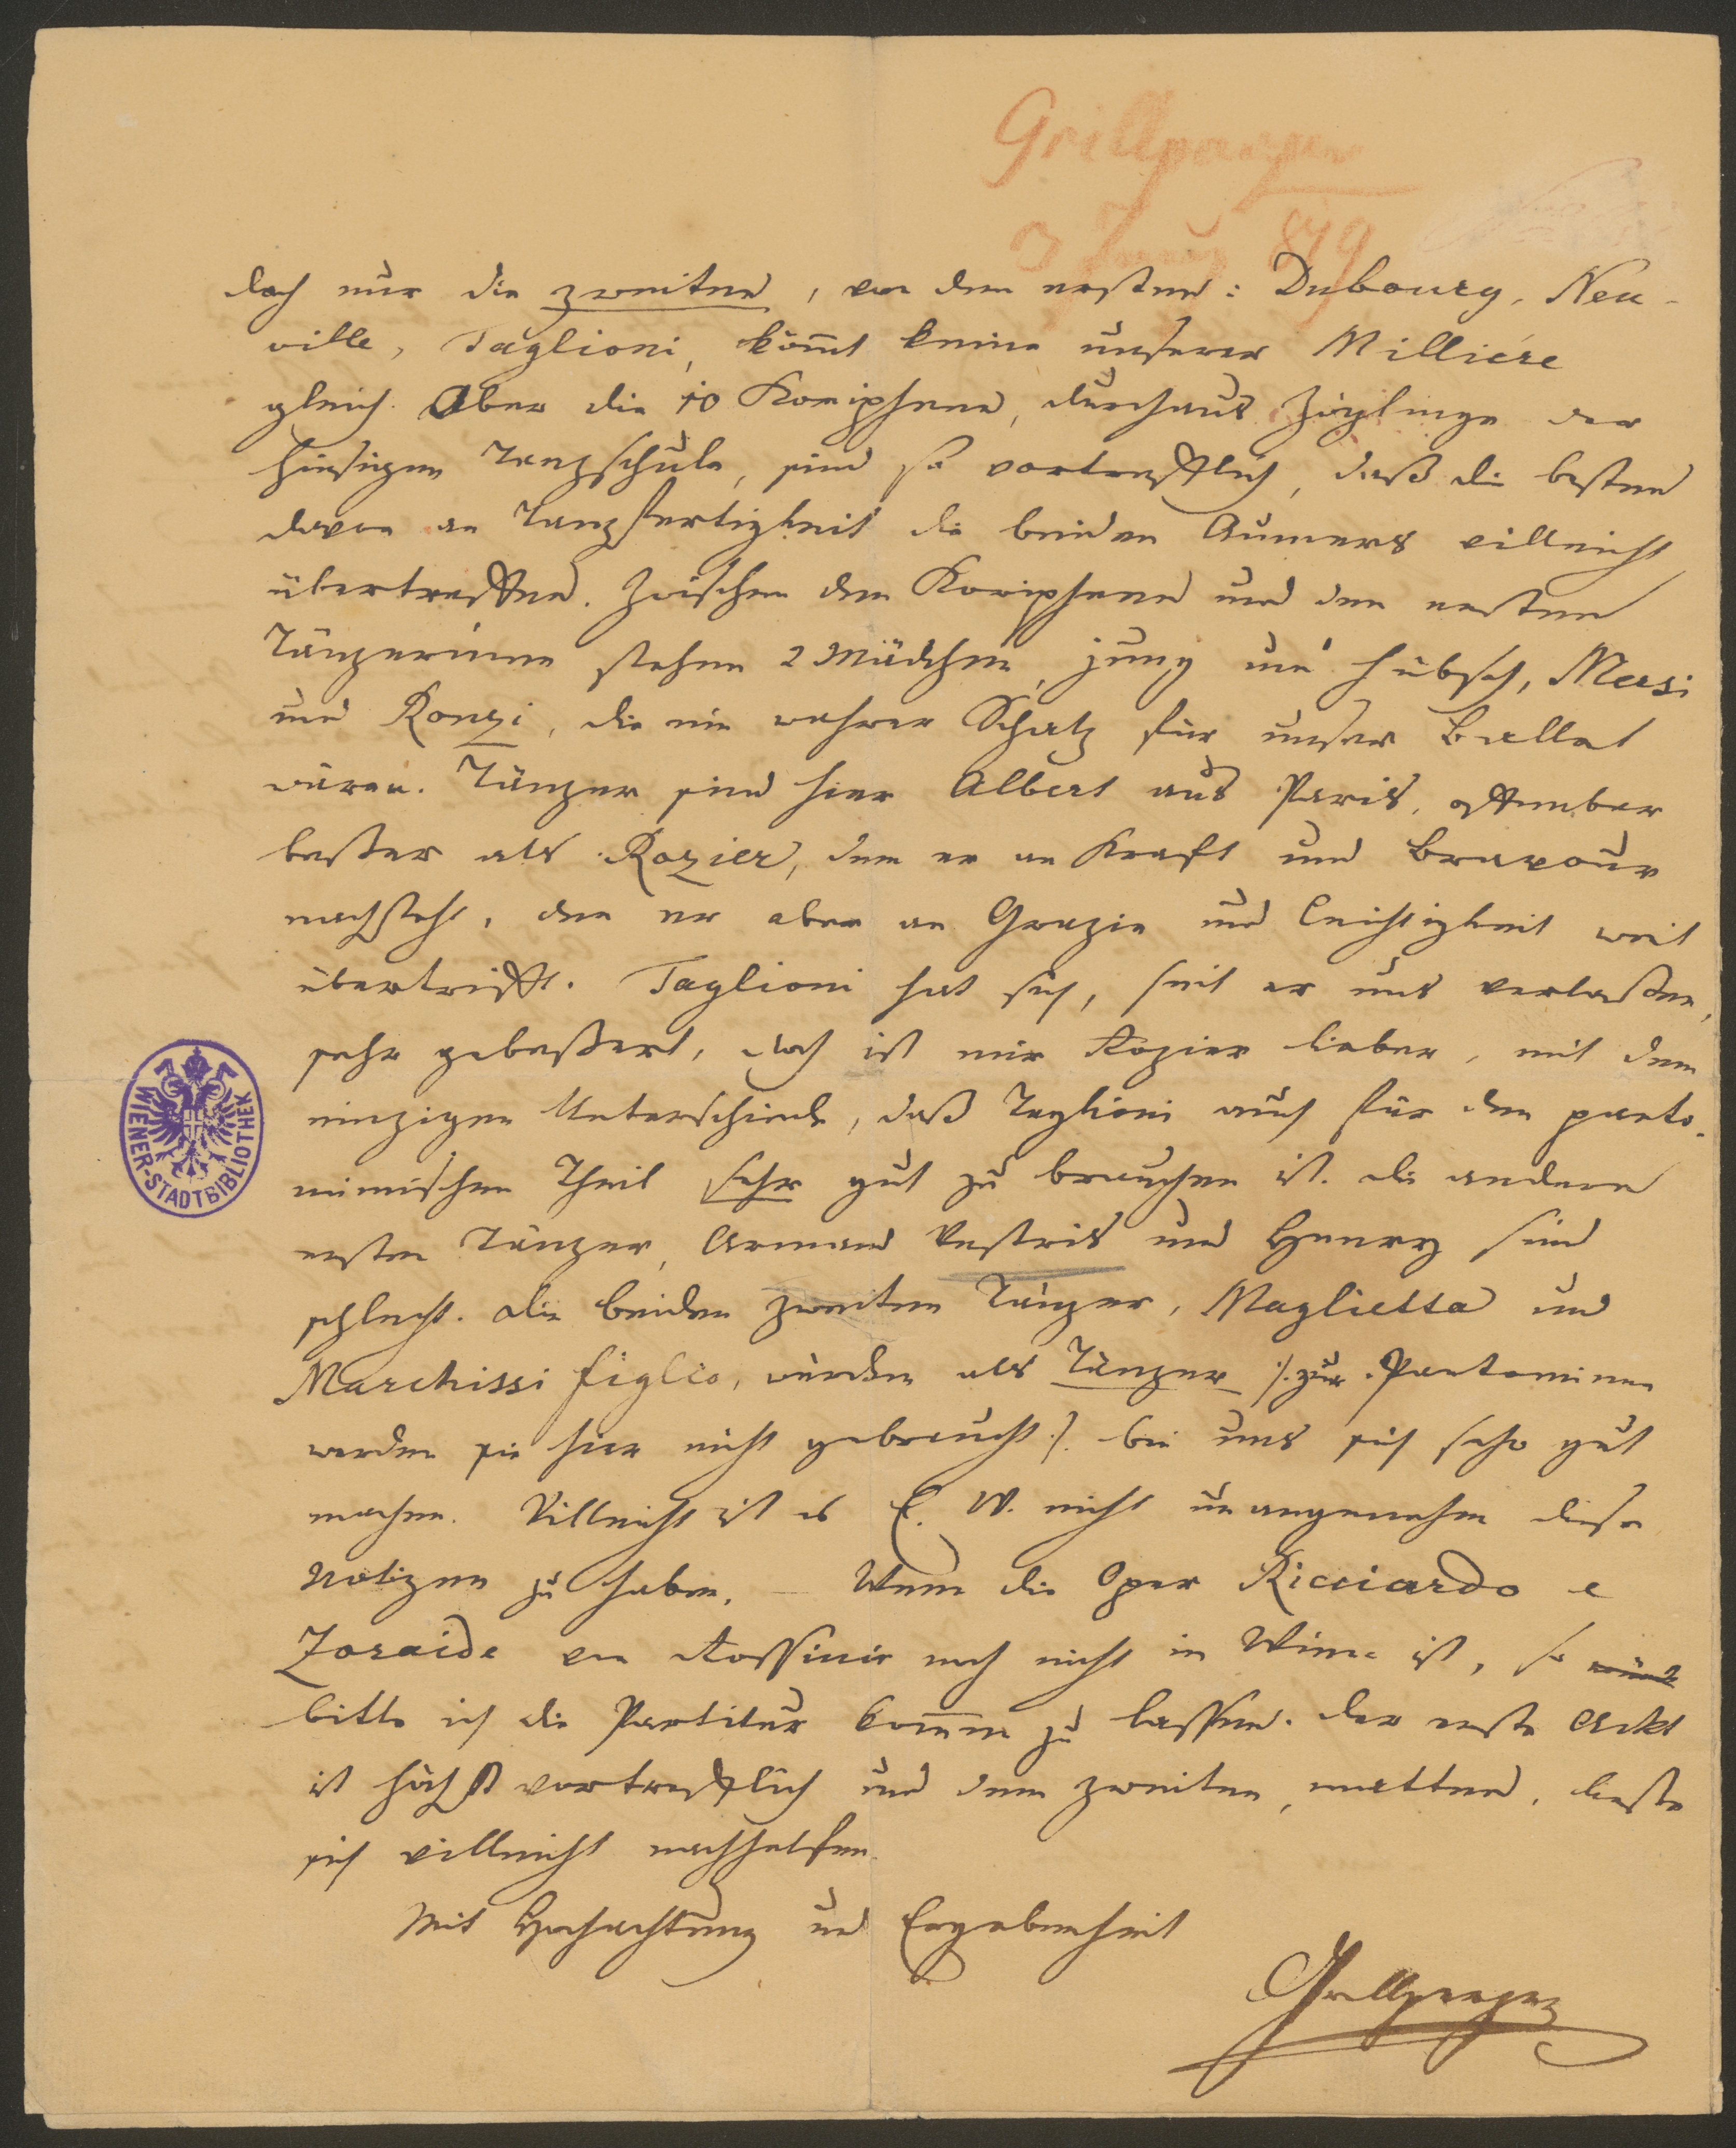 Grillparzer
3 Juny 819
doch nur die zweiten, von den ersten: Dubourg, Neu-
ville, Taglioni, kom̅t keine unserer Milliére
gleich. Aber die 10 Koripheen, durchaus Zöglinge der
hiesigen Tanzschule, sind so vortrefflich, daß die besten
davon an Tanzfertigkeit die beiden Aumers villeicht
übertreffen. Zwischen den Koripheen und den ersten
Tänzerinnen stehen 2 Mädchen, jung und hübsch, Mersi
und Ronzi, die ein wahrer Schatz für unser Ballet
wären. Tänzer sind hier Albert aus Paris, offenbar
beßer als Rozier, dem er an Kraft und Bravour
nachsteht, den er aber an Grazie und Leichtigkeit weit
übertrifft. Taglioni hat sich, seit er uns verlaßen,
sehr gebeßert, doch ist mir Rozier lieber, mit dem
einzigen Unterschiede, daß Taglioni auch für den panto-
mimischen Theil sehr gut zu brauchen ist. Die andern
ersten Tänzer, Armand Vestris und Henry sind
schlecht. Die beiden zweiten Tänzer, Maglietta und
Marchissi figlio, würden als Tänzer /: zur Pantomime
werden sie hier nicht gebraucht :/ bei uns sich sehr gut
machen. Villeicht ist es E. W. nicht unangenehm diese
Notizen zu haben. – Wenn die Oper Ricciardo e
Zoraide von Rossini noch nicht in Wien ist, so
bitte ich die Partitur kom̅en zu lassen. Der erste Ackt
ist höchst vortrefflich und dem zweiten, matten, ließe
sich villeicht nachhelfen.
Mit Hochachtung und Ergebenheit
Grillparzer
WIENER-STADTBIBLIOTHEK